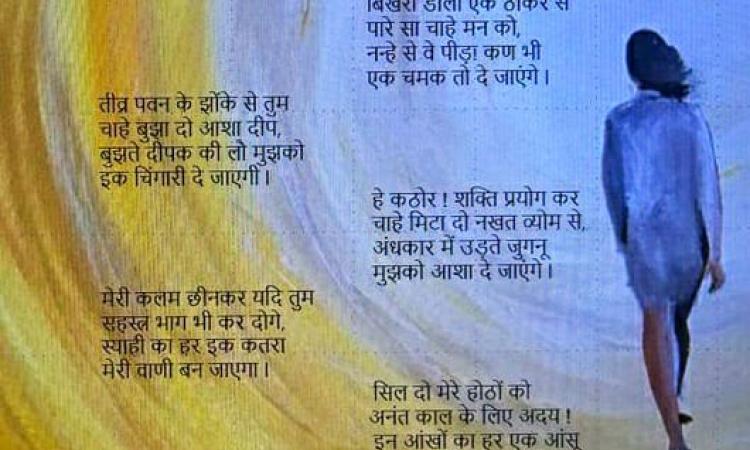 बिखरा डालो एक ठोकर से
पारे सा चाहे मन को,
नन्हे से वे पीड़ा कण भी
एक चमक तो दे जाएंगे।
तीव्र पवन के झोंके से तुम
चाहे बुझा दो आशा दीप,
बुझते दीपक की लो मुझको
इक चिंगारी दे जाएगी।
हे कठोर ! शक्ति प्रयोग कर
चाहे मिटा दो नखत व्योम से,
अंधकार में उड़ते जुगनू
मुझको आशा दे जाएंगे।
मेरी कलम छीनकर यदि तुम
सहस्त्र भाग भी कर दोगे,
स्याही का हर इक कतरा
मेरी वाणी बन जाएगा।
सिल दो मेरे होठों को
अनंत काल के लिए अदय !
इन आंखों का हर एक आंसू